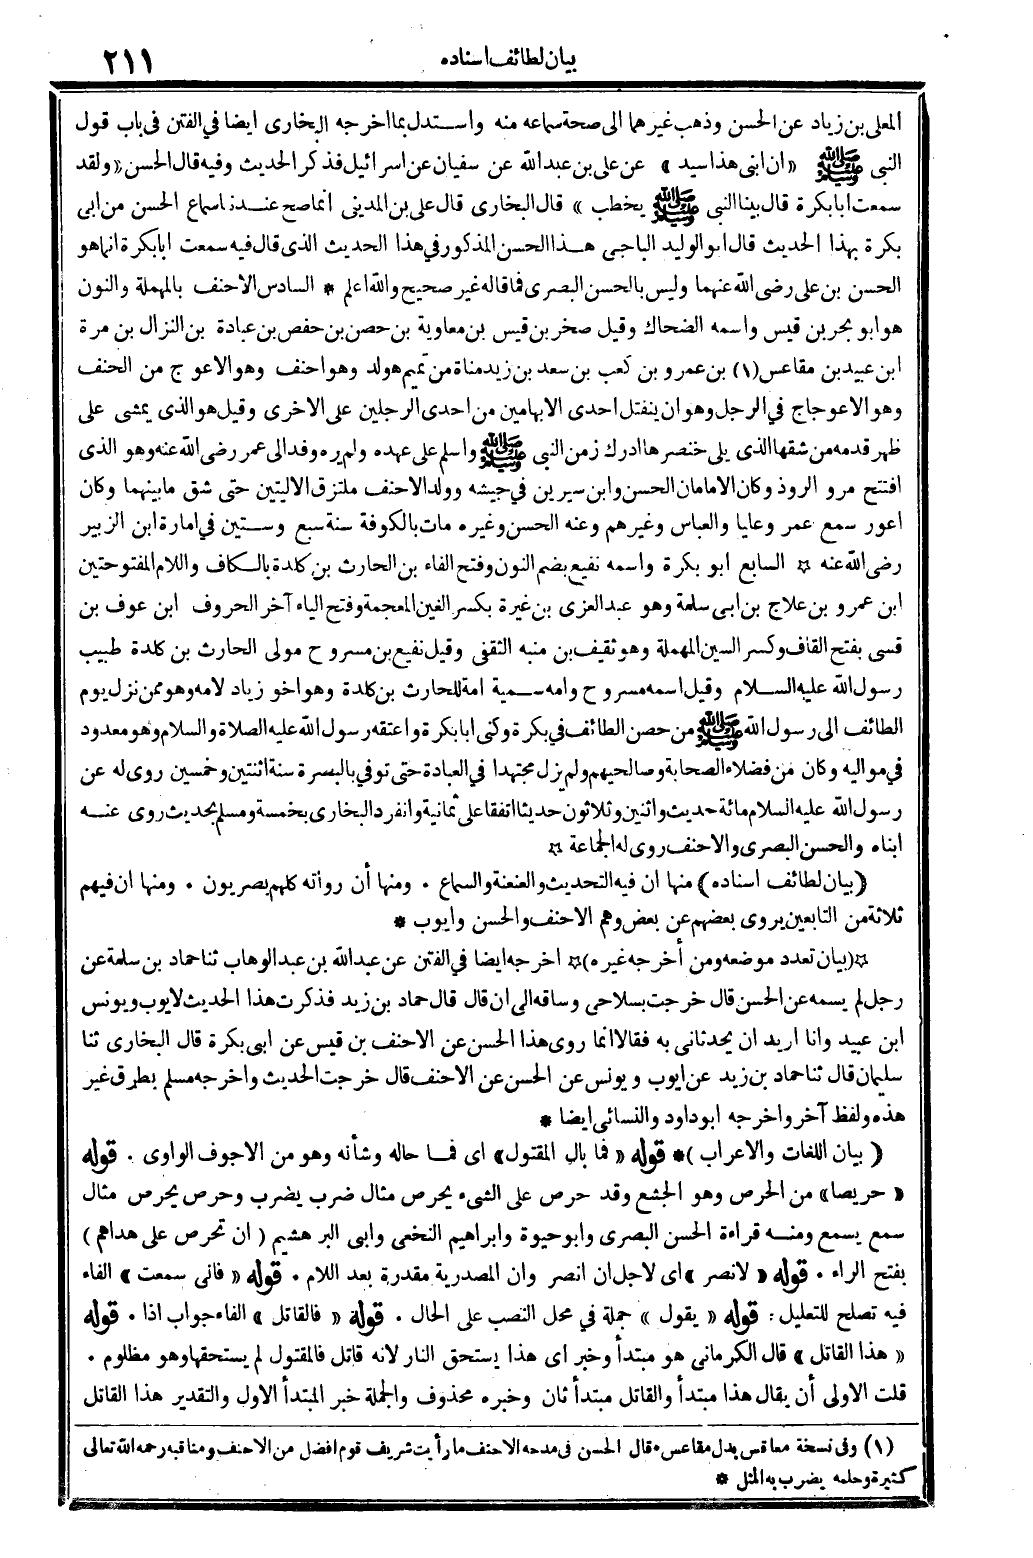 ٢١١
بيان لطائف اسناده
المعلى بن زياد عن الحسن وذهب غيرهما الى صحة سماعه منه واستدل بما اخرجه البخارى ايضا في الفتن فى باب قول
النبى ﷺ «ان ابنى هذا سيد» عن على بن عبد الله عن سفيان عن اسرائيل فذكر الحديث وفيه قال الحسن «ولقد
سمعت ابا بكرة قال بينا النبى ﷺ يخطب» قال البخارى قال على بن المدينى انما صح عندنا سماع الحسن من ابى
بكرة بهذا الحديث قال ابو الوليد الباجى هذا الحسن المذكور في هذا الحديث الذى قال فيه سمعت ابا بكرة انما هو
الحسن بن على رضى الله عنهما وليس بالحسن البصرى فما قاله غير صحيح والله اعلم * السادس الاحنف بالمهملة والنون
هو ابو بحر بن قيس واسمه الضحاك وقيل صخر بن قيس بن معاوية بن حصن بن حفص بن عبادة بن النزال بن مرة
ابن عبيد بن مقاعس (١) بن عمرو بن كعب بن سعد بن زيد مناة من تميم هولد وهو احنف وهو الاعوج من الحنف
وهو الاعوجاج في الرجل وهو ان ينفتل احدى الابهامين من احدى الرجلين على الاخرى وقيل هو الذى يمشى على
ظهر قدمه من شقها الذى يلى خنصرها ادرك زمن النبى ﷺ واسلم على عهده ولم يره وفد الى عمر رضى الله عنه وهو الذى
افتتح مرو الروذ وكان الامامان الحسن وابن سيرين في جيشه وولد الاحنف ملتزق الاليتين حتى شق ما بينهما وكان
اعور سمع عمر وعليا والعباس وغيرهم وعنه الحسن وغيره مات بالكوفة سنة سبع وستين في امارة ابن الزبير
رضى الله عنه ☆ السابع ابو بكرة واسمه نفيع بضم النون وفتح الفاء بن الحارث بن كلدة بالكاف واللام المفتوحتين
ابن عمرو بن علاج بن ابى سلمة وهو عبد العزى بن غيرة بكسر الغين المعجمة وفتح الياء آخر الحروف ابن عوف بن
قسى بفتح القاف وكسر السين المهملة وهو ثقيف بن منبه الثقفى وقيل نفيع بن مسروح مولى الحارث بن كلدة طبيب
رسول الله عليه السلام وقيل اسمه مسروح وامه سمية امة للحارث بن كلدة وهو اخو زياد لامه وهو ممن نزل يوم
الطائف الى رسول الله ﷺ من حصن الطائف في بكرة وكنى ابا بكرة واعتقه رسول الله عليه الصلاة والسلام وهو معدود
في مواليه وكان من فضلاء الصحابة وصالحيهم ولم يزل مجتهدا في العبادة حتى توفي بالبصرة سنة اثنتين وخمسين روى له عن
رسول الله عليه السلام مائة حديث واثنين وثلاثون حديثا اتفقا على ثمانية وانفرد البخارى بخمسة ومسلم بحديث روى عنه
ابناه والحسن البصرى والاحنف روى له الجماعة ☆
(بيان لطائف اسناده) منها ان فيه التحديث والعنعنة والسماع . ومنها أن رواته كلهم بصريون . ومنها ان فيهم
ثلاثة من التابعين يروى بعضهم عن بعض وهم الاحنف والحسن وايوب *
☆(بيان تعدد موضعه ومن أخرجه غيره)☆ اخرجه ايضا في الفتن عن عبد الله بن عبد الوهاب ثنا حماد بن سلمة عن
رجل لم يسمه عن الحسن قال خرجت بسلاحى وساقه الى ان قال قال حماد بن زيد فذكرت هذا الحديث لايوب ويونس
ابن عبيد وانا اريد ان يحدثانى به فقالا انما روى هذا الحسن عن الاحنف بن قيس عن ابى بكرة قال البخارى ثنا
سليمان قال ثنا حماد بن زيد عن ايوب ويونس عن الحسن عن الاحنف قال خرجت الحديث واخرجه مسلم بطرق غير
هذه ولفظ آخر واخرجه ابو داود والنسائى ايضا *
(بيان اللغات والاعراب)* قوله «فما بال المقتول» اى فما حاله وشأنه وهو من الاجوف الواوى . قوله
«حريصا» من الحرص وهو الجشع وقد حرص على الشىء يحرص مثال ضرب يضرب وحرص يحرص مثال
سمع يسمع ومنه قراءة الحسن البصرى وابو حيوة وابراهيم النخعى وابى البر هشيم (ان تحرص على هداهم)
بفتح الراء . قوله «لانصر» اى لاجل ان انصر وان المصدرية مقدرة بعد اللام . قوله «فانى سمعت» الفاء
فيه تصلح للتعليل : قوله «يقول» جملة في محل النصب على الحال . قوله «فالقاتل» الفاء جواب اذا . قوله
«هذا القاتل» قال الكرمانى هو مبتدأ وخبر اى هذا يستحق النار لانه قاتل فالمقتول لم يستحقها وهو مظلوم .
قلت الاولى أن يقال هذا مبتدأ والقاتل مبتدأ ثان وخبره محذوف والجملة خبر المبتدأ الاول والتقدير هذا القاتل
(١) وفى نسخة معاقس بدل مقاعس * قال الحسن فى مدحه الاحنف ما رأيت شريف قوم افضل من الاحنف ومناقبه رحمه الله تعالى
كثيرة وحلمه يضرب به المثل *